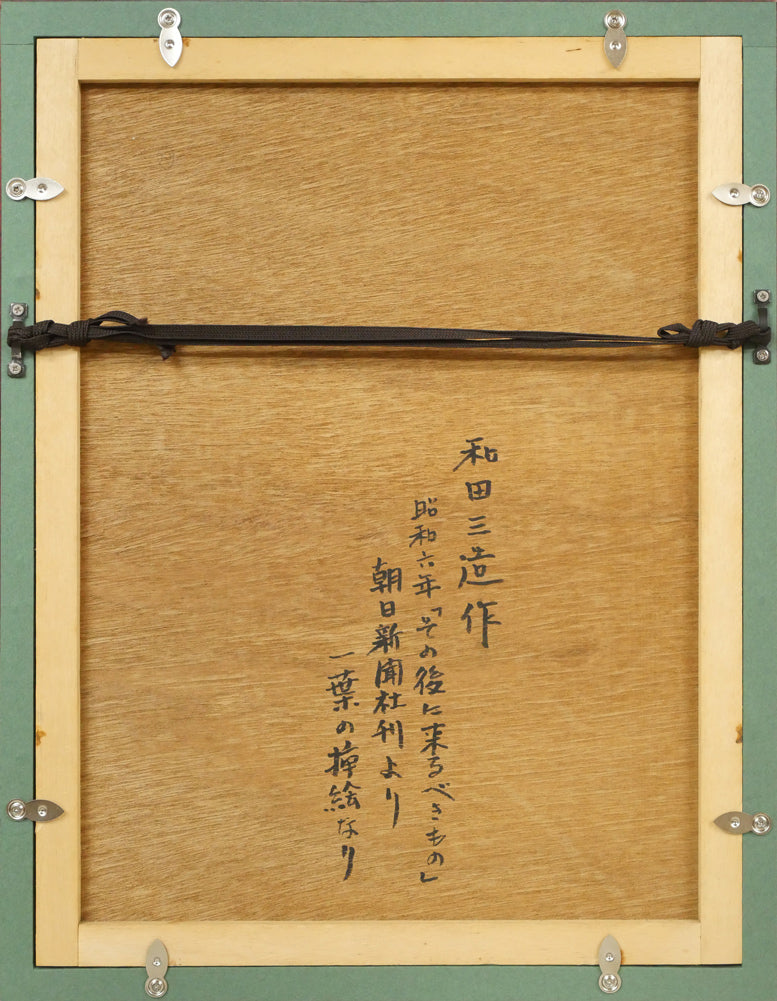 和田三造作
昭和六年「その後に来るべきもの」
朝日新聞社刊より
一葉の挿絵なり